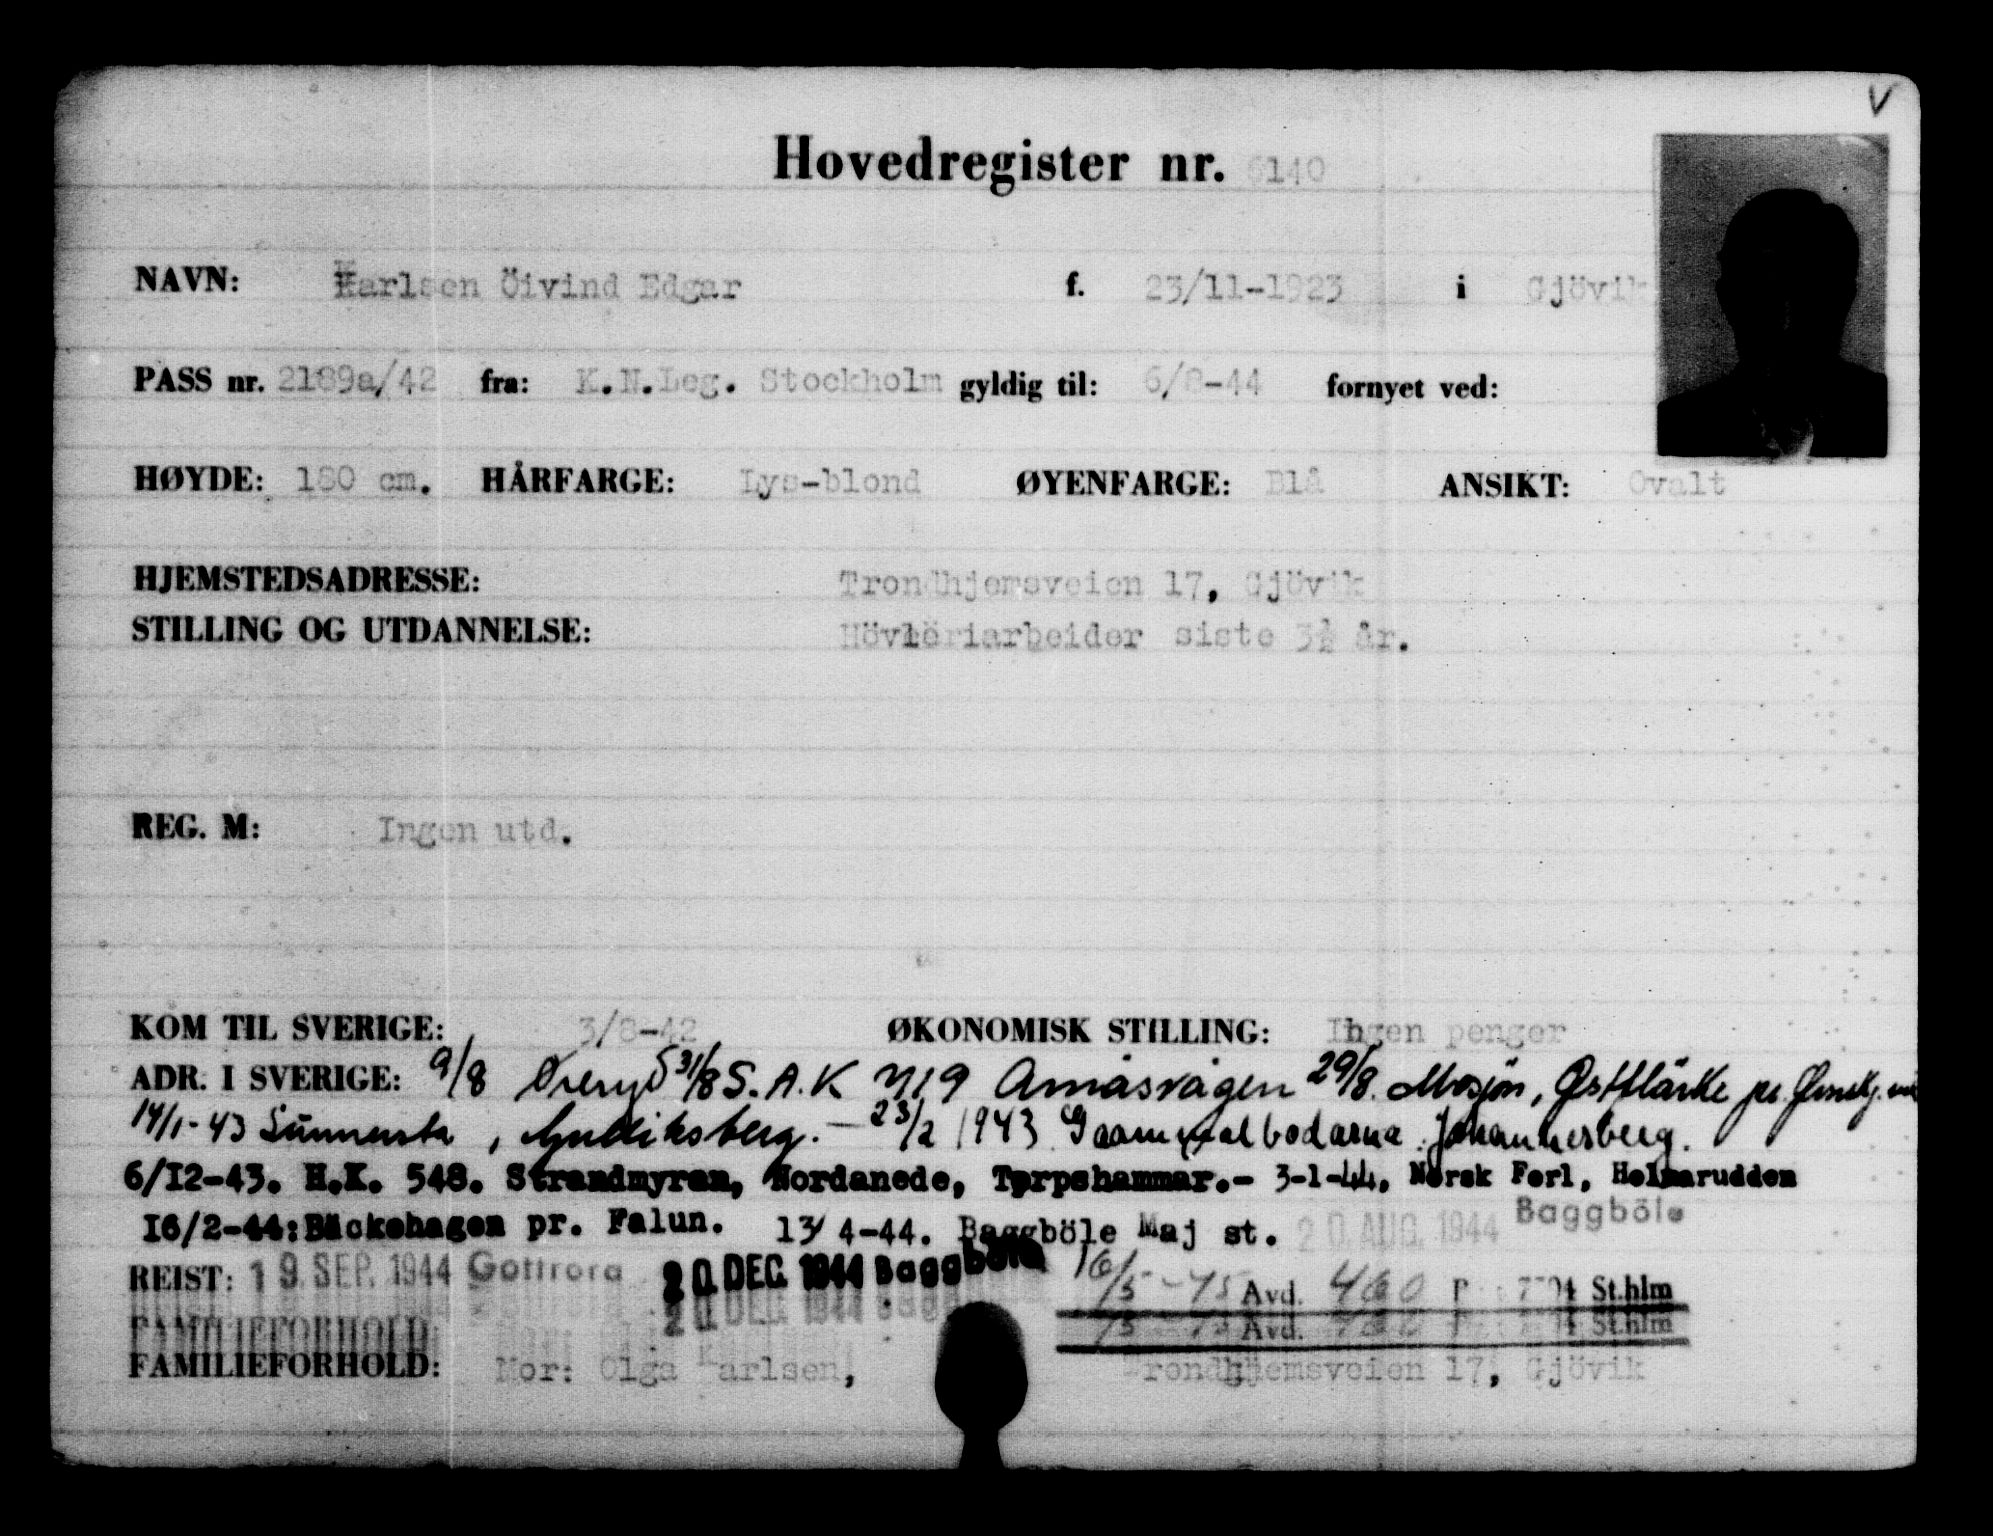 V
Hovedregister nr. 6140
NAVN: Karlsen Öivind Edgar f. 23/11-1923 i Gjövik
PASS nr. 2189a/42 fra: K.N.Leg. Stockholm gyldig til: 6/8-44 fornyet ved:
HØYDE: 180 cm. HÅRFARGE: Lys-blond ØYENFARGE: Blå ANSIKT: Ovalt
HJEMSTEDSADRESSE: Trondhjemsveien 17, Gjövik
STILLING OG UTDANNELSE: Hövleriarbeider siste 3½ år.
REG. M: Ingen utd.
KOM TIL SVERIGE: 3/8-42 ØKONOMISK STILLING: Ingen penger
ADR. I SVERIGE: 9/8 Öreryd 31/8 S.A.K. 719 Amåsvägen 29/8. Mosjön, Østflärke pr.
14/1-43 Sunnersta, Gulliksberg. - 23/2 1943 Gaammalbodarna. Johannesberg.
6/12-43. H.K. 548. Strandmyran, Nordanede, Torpshammar.- 3-1-44, Norsk Forl, Holmarudden
16/2-44: Bäckehagen pr. Falun. 13/4-44. Baggböle Maj st. 20. AUG. 1944 Baggböle
REIST: 19. SEP. 1944 Gottröra 20. DEC. 1944 Baggböle 16/5-45 Avd. 460 St.hlm
FAMILIEFORHOLD: Mor: Olga Karlsen, Trondhjemsveien 17, Gjövik